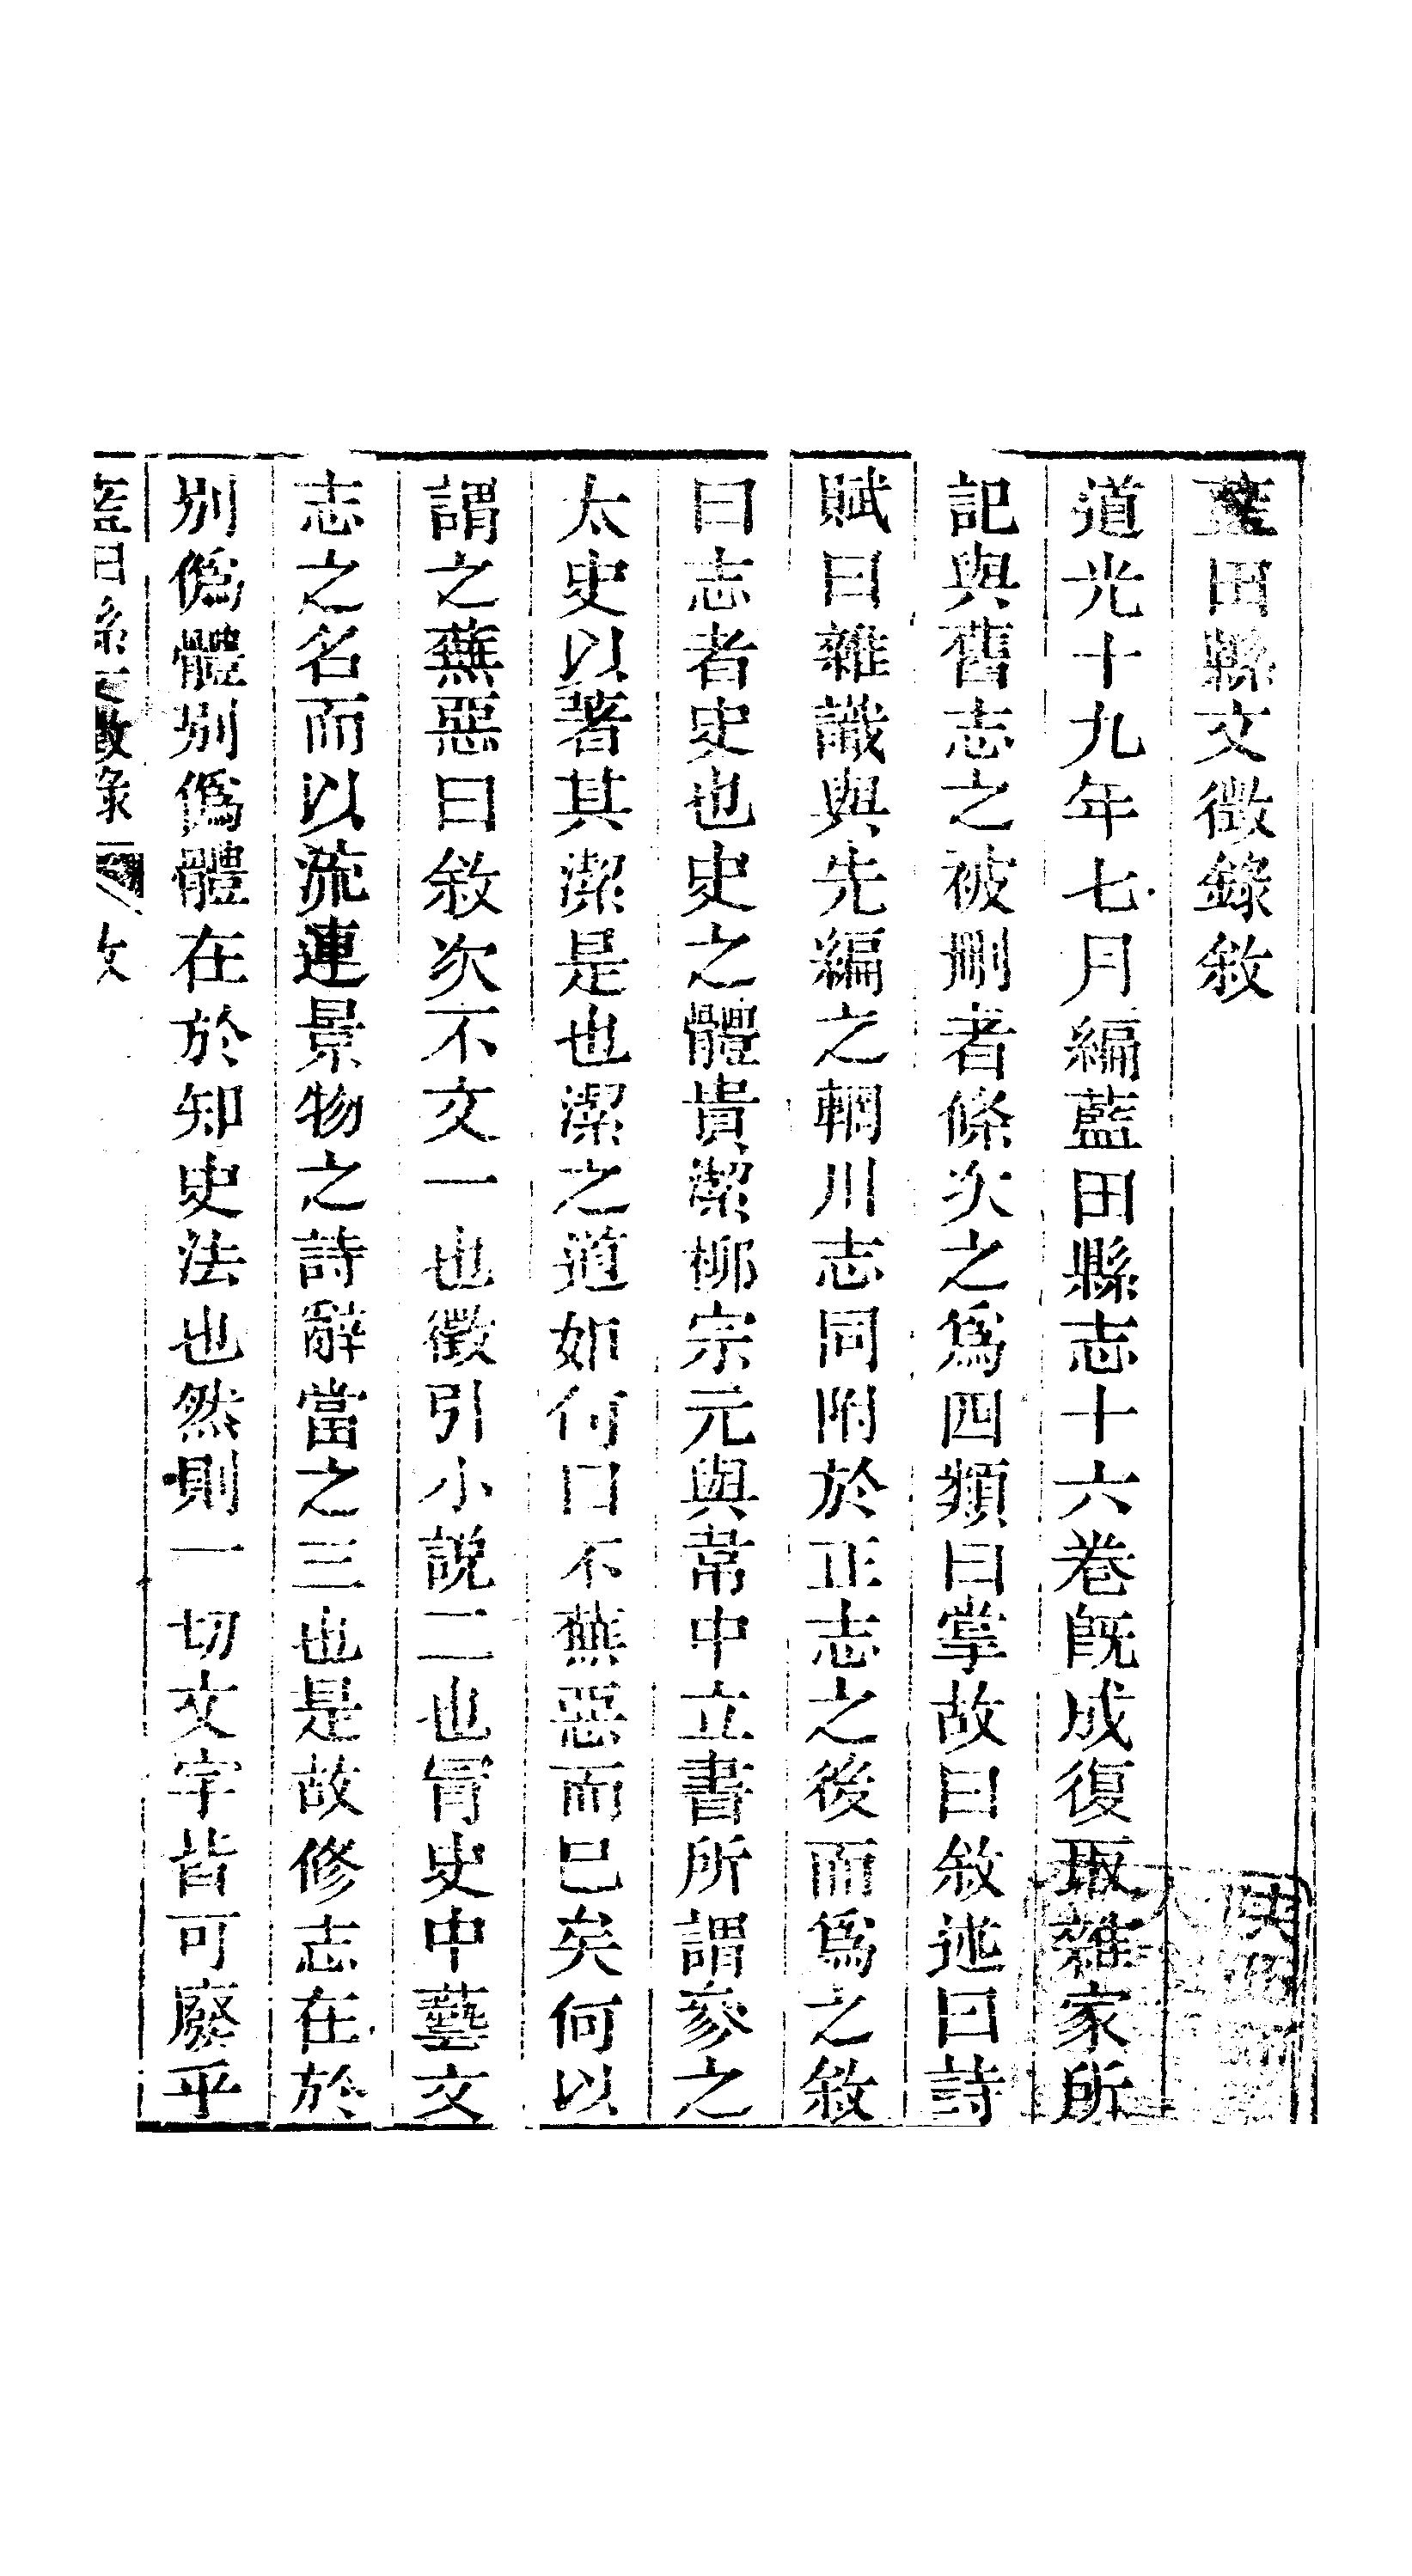 藍田縣文徵錄敘
道光十九年七月編藍田縣志十六卷既成復取雜家所
記與舊志之被刪者條次之爲四類曰掌故曰敘述曰詩
賦曰雜識與先編之輞川志同附於正志之後而爲之敘
曰志者史也史之體貴潔柳宗元與韋中立書所謂參之
太史以著其潔是也潔之道如何曰不蕪惡而已矣何以
謂之蕪惡曰敘次不文一也徵引小說二也冐史中藝文
志之名而以流連景物之詩辭當之三也是故修志在於
別僞體別僞體在於知史法也然則一切文字皆可廢乎